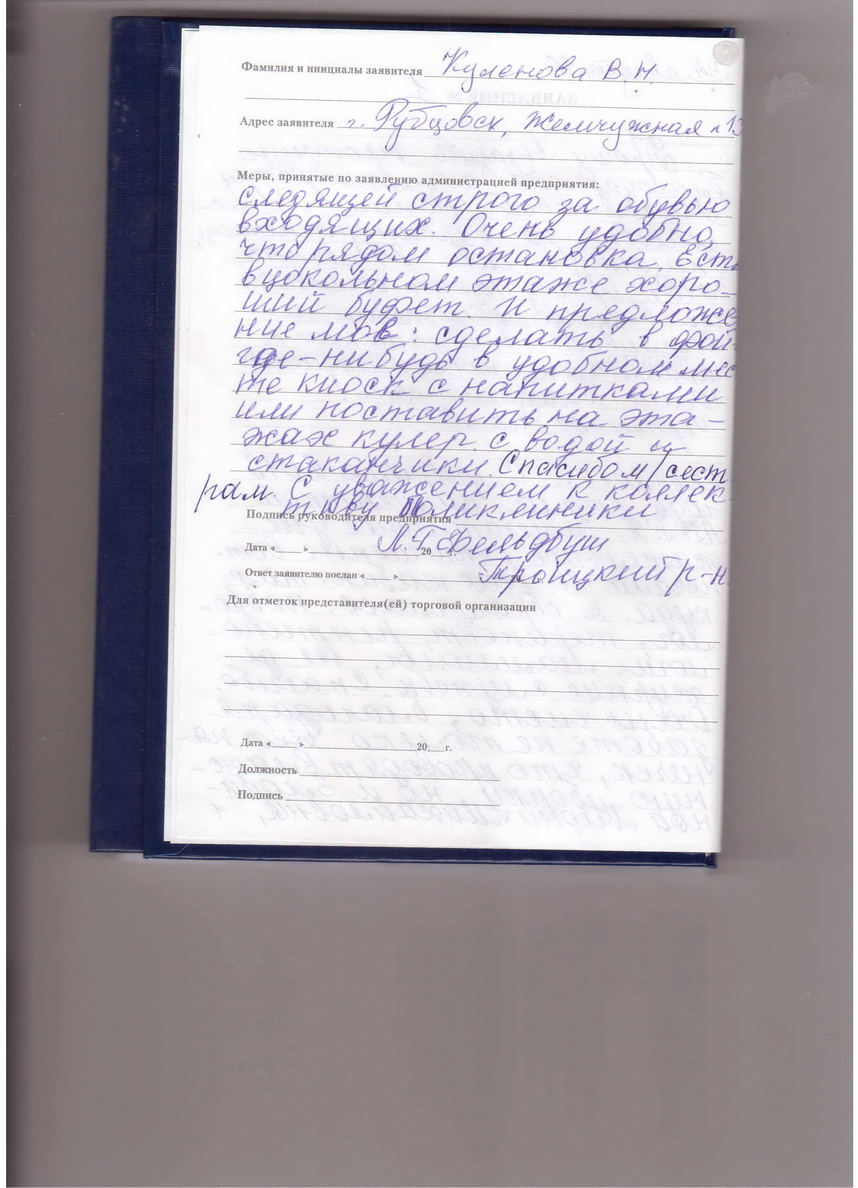 Фамилия и инициалы заявителя Куленова В. Н.
Адрес заявителя г. Рубцовск, Жемчужная
Меры, принятые по заявлению администрацией предприятия:
следящей строго за обувью
входящих. Очень удобно,
что рядом остановка. Есть
в цокольном этаже хоро-
ший буфет. И предложе
ние моё: сделать в фой
где-нибудь в удобном мес
те киоск с напитками
или поставить на эта-
жах кулер с водой и
стаканчики. Спасибо м/сест
рам. С уважением к коллек
тиву Поликлиники
Подпись руководителя предприятия
Л. Г. Фельдбуш
Дата «___» 20 г.
Троицкий р-н.
Ответ заявителю послан «___»
Для отметок представителя(ей) торговой организации
Дата «___» 20__г.
Должность
Подпись